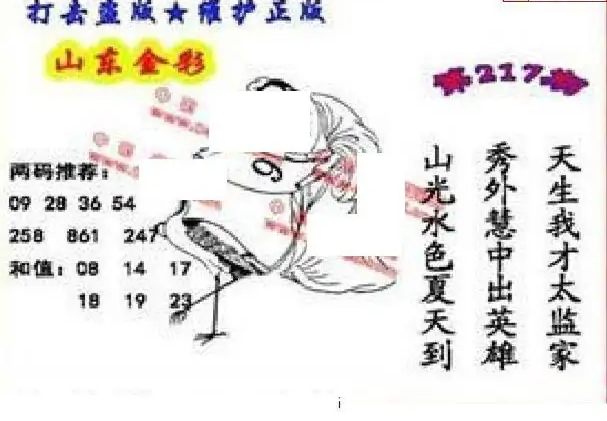 打击盗版★维护正版
山东金彩
217
天生我才太监家
秀外慧中出英雄
山光水色夏天到
两码推荐：
09 28 36 54
258 861 247
和值：08 14 17
18 19 23
9
i